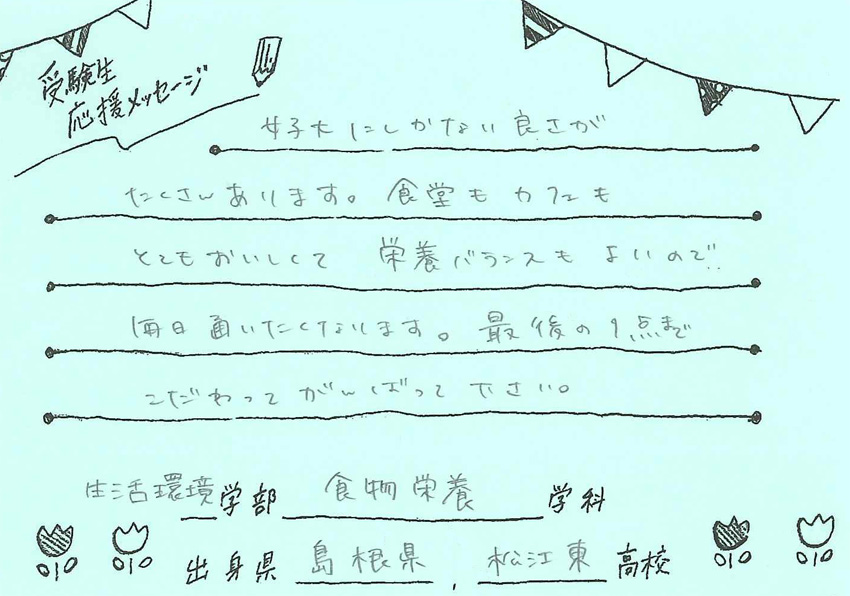 受験生
応援メッセージ
女子大にしかない良さが
たくさんあります。食堂も カフェも
とてもおいしくて 栄養バランスも よいので
毎日通いたくなります。最後の1点まで
こだわって がんばって 下さい。
生活環境学部 食物栄養 学科
出身県 島根県, 松江東 高校